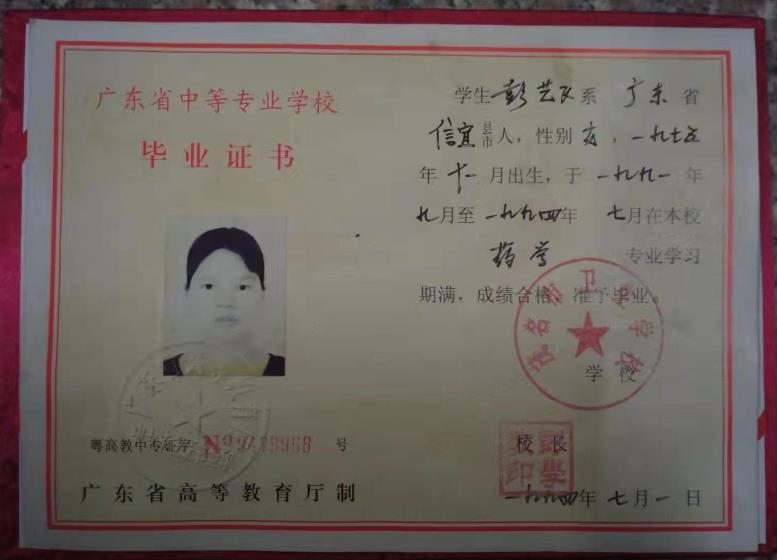 广东省中等专业学校
毕业证书
粤高教中专证字 №9419968 号
广东省高等教育厅制
学生彭艺文系 广东 省
信宜县市人，性别女，一九七五
年 十一 月出生，于 一九九一 年
九月至 一九九四年 七月在本校
药学 专业学习
期满，成绩合格，准予毕业。
茂名市卫生学校
学校
校长
一九九四年 七月一日